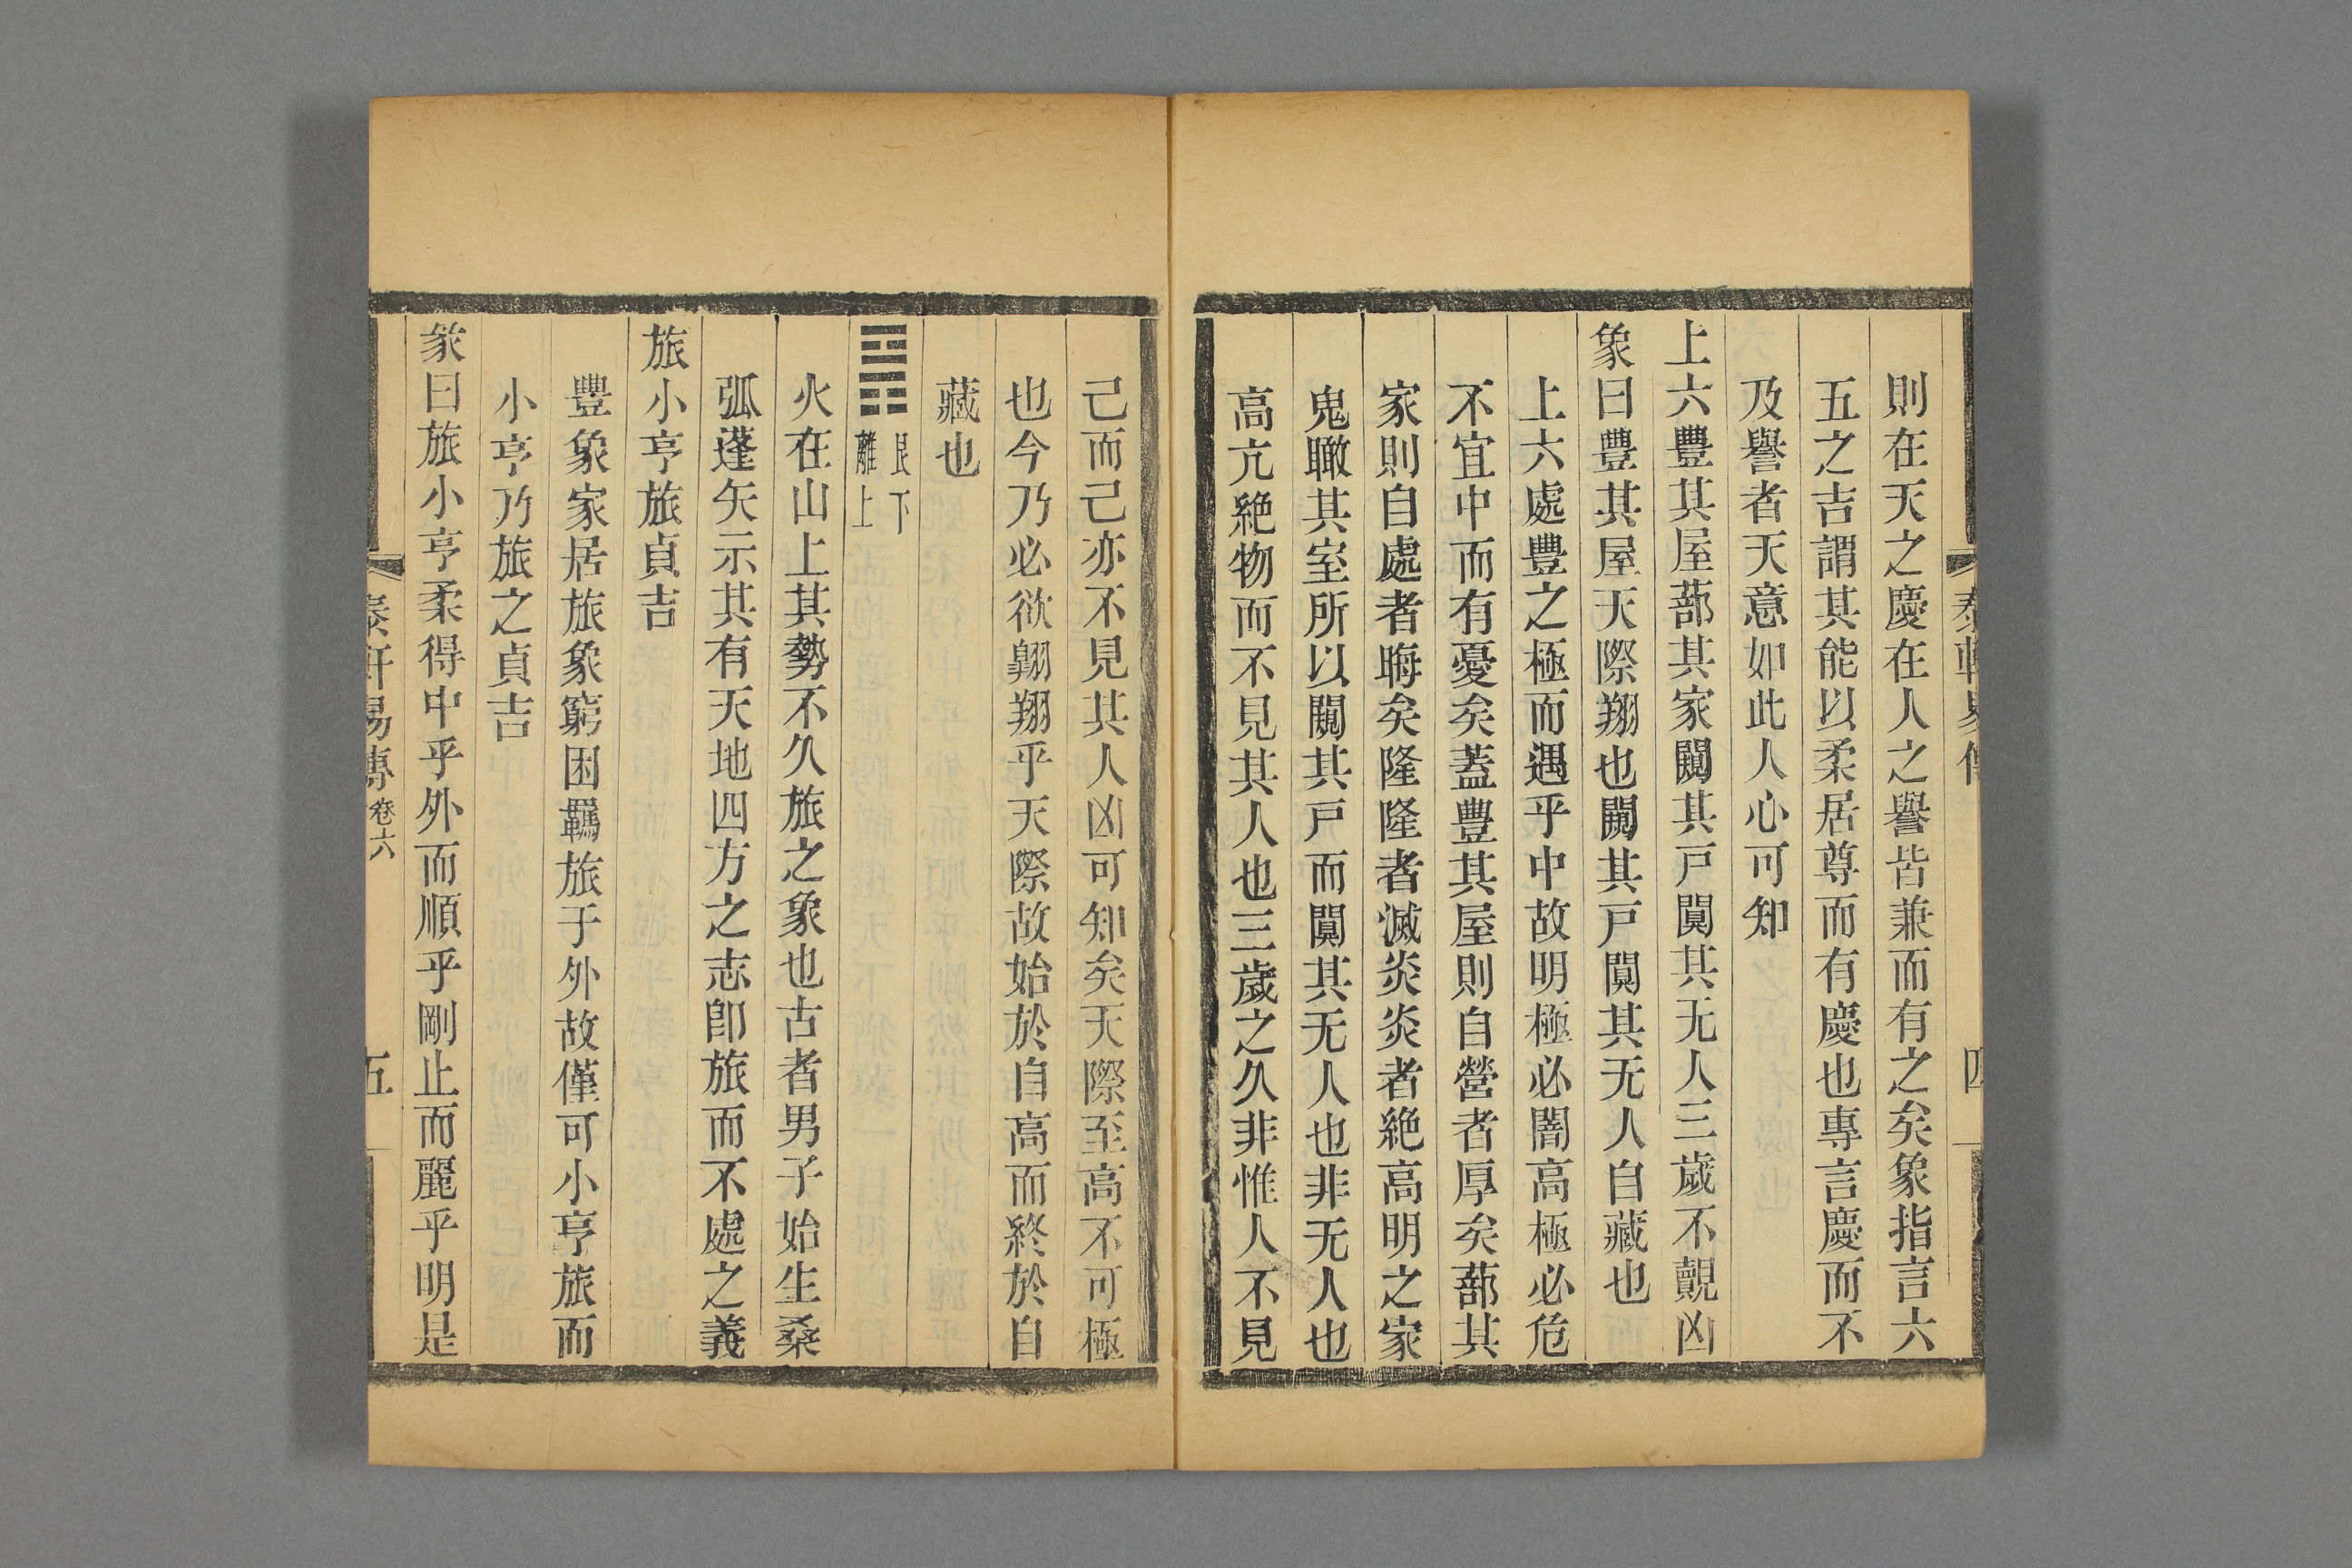 則在天之慶在人之譽皆兼而有之矣象指言六
五之吉謂其能以柔居尊而有慶也專言慶而不
及譽者天意如此人心可知
上六豐其屋蔀其家闚其戸闃其无人三歲不覿凶
象曰豐其屋天際翔也闚其戸闃其无人自藏也
上六處豐之極而遇乎中故明極必闇高極必危
不宜中而有憂矣蓋豐其屋則自營者厚矣蔀其
家則自處者晦矣隆隆者滅炎炎者絶高明之家
鬼瞰其室所以闚其戸而闃其无人也非无人也
高亢絶物而不見其人也三歲之久非惟人不見
己而己亦不見其人凶可知矣天際至高不可極
也今乃必欲翺翔乎天際故始於自高而終於自
藏也
䷷
艮下
離上
火在山上其勢不久旅之象也古者男子始生桑
弧蓬矢示其有天地四方之志卽旅而不處之義
旅小亨旅貞吉
豐象家居旅象窮困羈旅于外故僅可小亨旅而
小亨乃旅之貞吉
彖曰旅小亨柔得中乎外而順乎剛止而麗乎明是
泰軒易傳 卷六
五